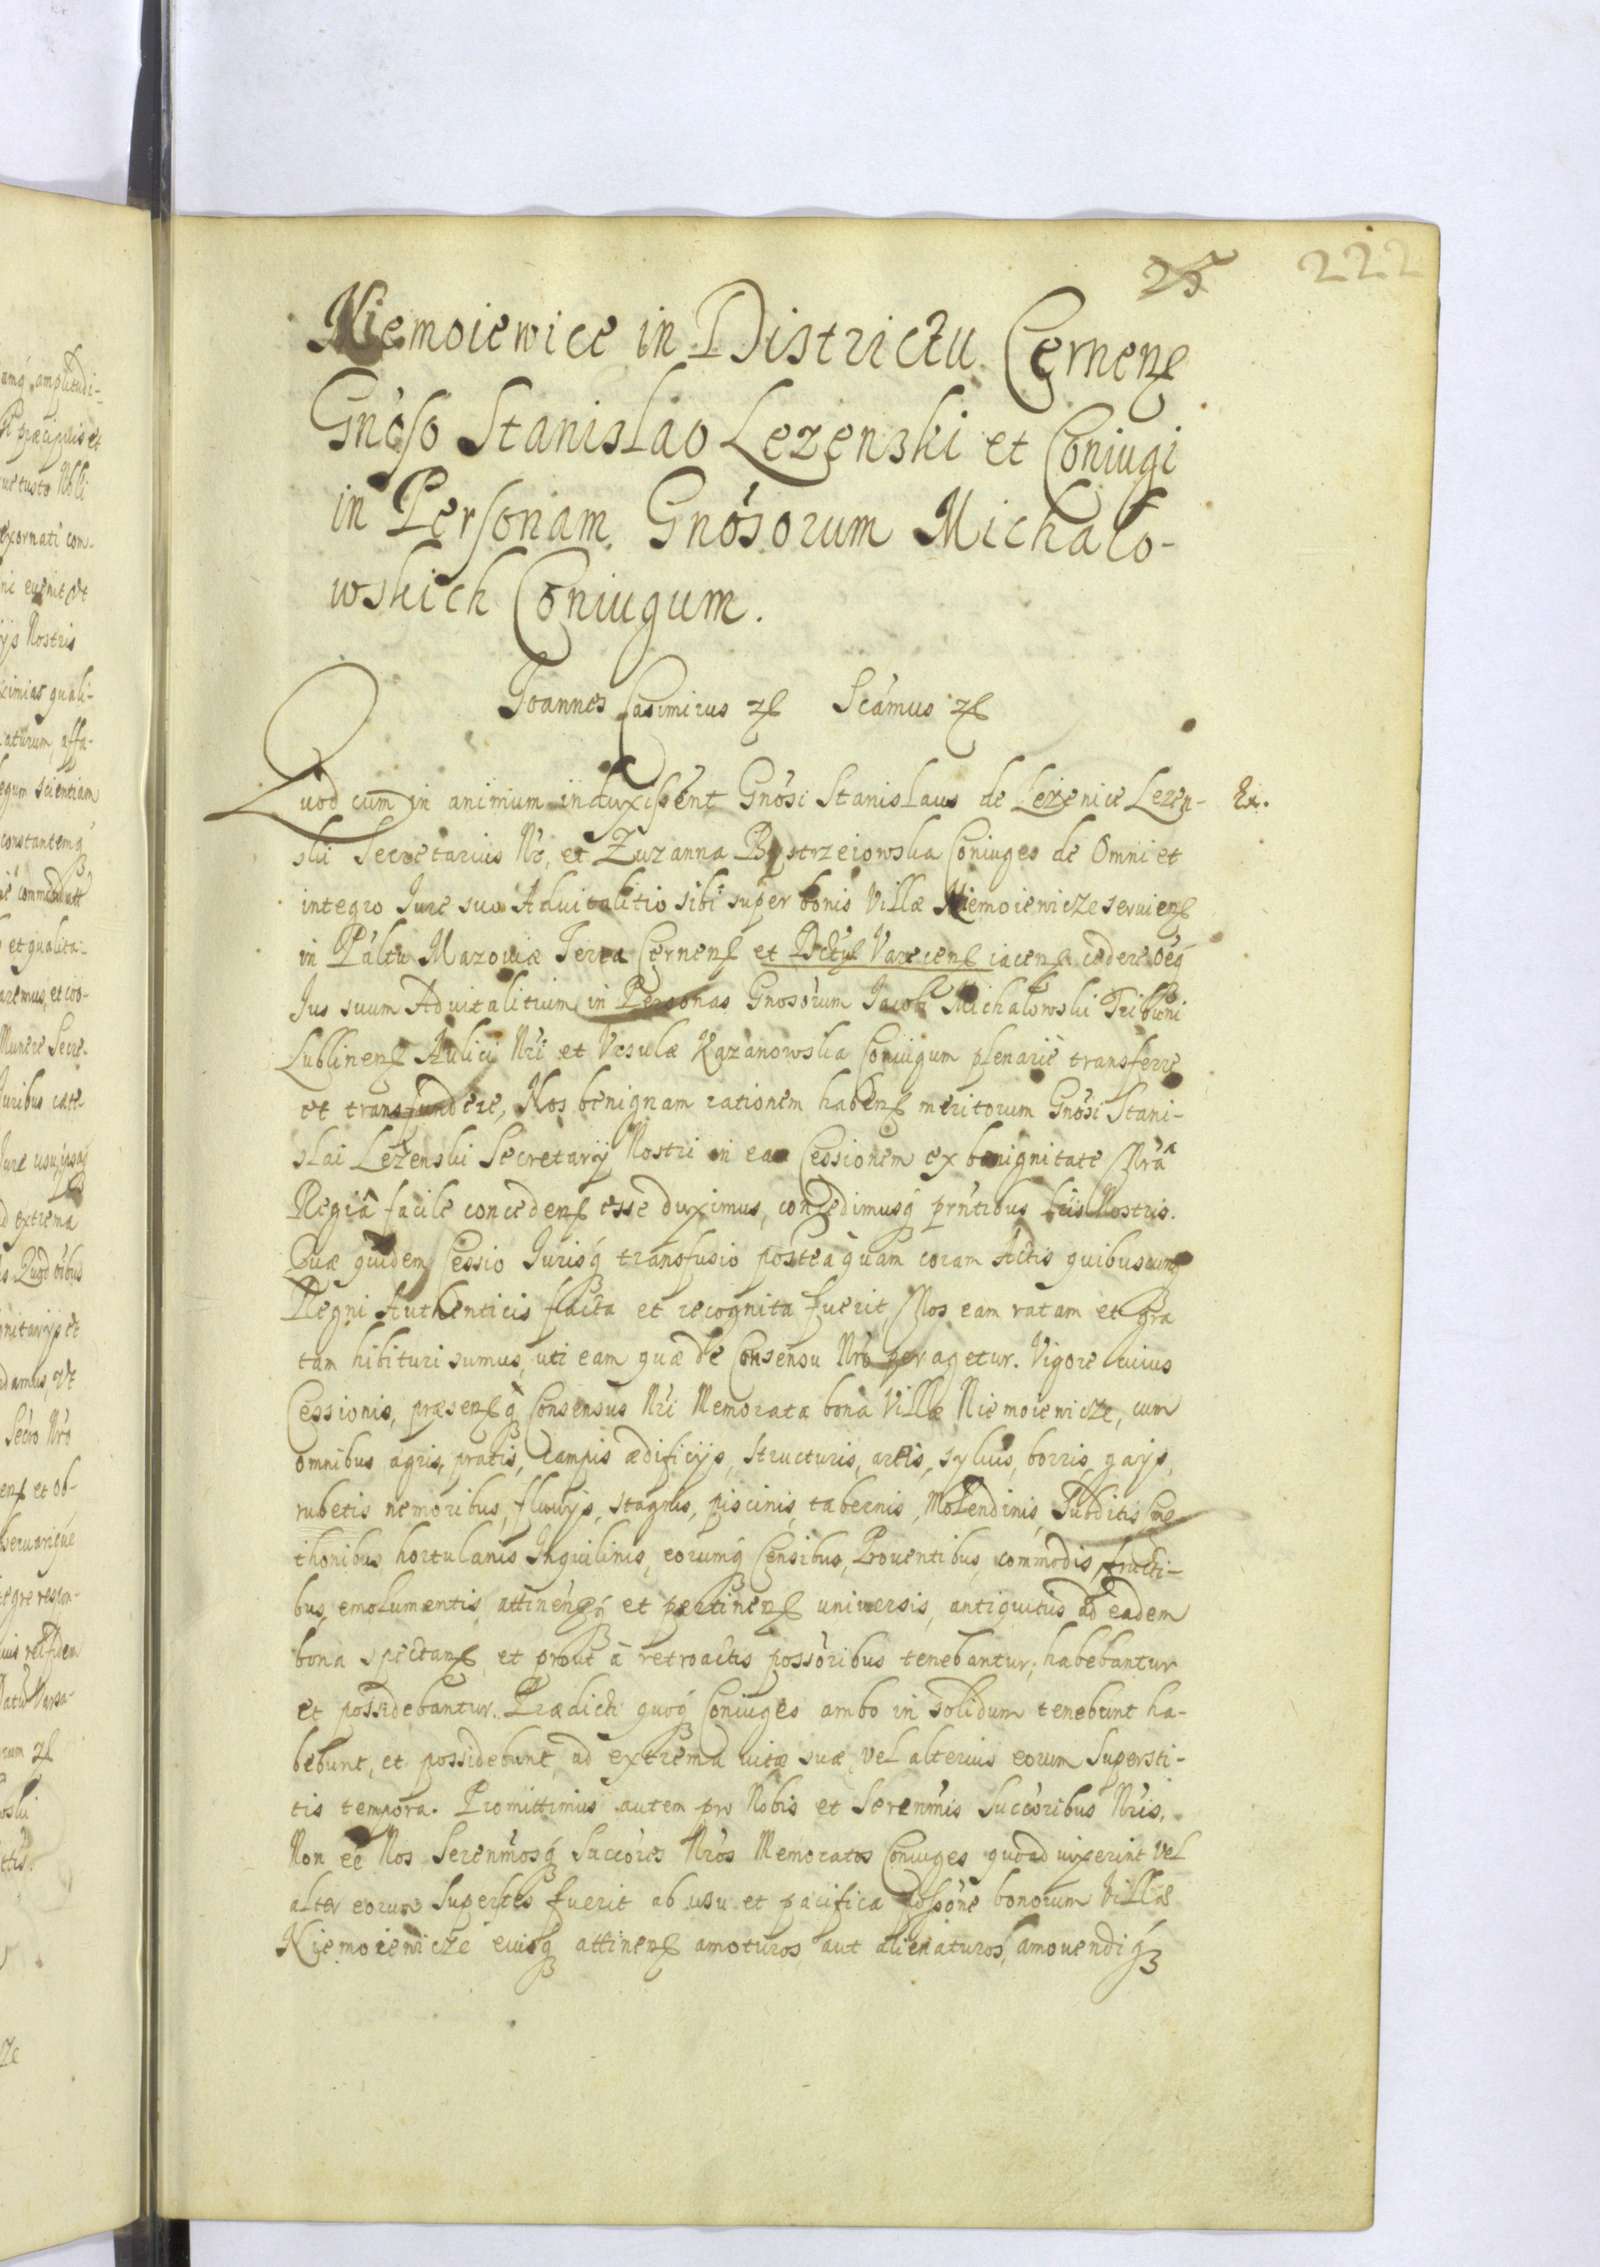 25 222
Niemoiewice in Districtu Cernenß
Gnoso Stanislao Lezenski et Coniugi
in Personam Gnosorum Michalo-
wskich Coniugum.
Joannes Casimirus Scamus
Quod cum in animum induxissent Gnosi Stanislaus de Lezenice Lezen- Ex.
ski Secretarius Nr, et Zuzanna Bystrzeiowska Coniuges de Omni et
integro Jure suo Aduitalitio sibi super bonis Villæ Niemoiewicze seruienß
in Paltu Mazouiæ Terra Cernenß et Dctus Varecenß iacenß cedere oeq
Jus suum Aduitalitium in Personas Gnosorum Jacobi Michalowski Tribuni
Lublinenß Aulici Nri et Vrsulæ Kazanowska Coniugum plenarie transferre
et transfundere, Nos benignam rationem habenß meritorum Gnosi Stani-
slai Lezenski Secretarij Nostri in eam Cessionem ex benignitate Nra
Regiâ facile concedenß esse duximus, concedimusq prntibus Lris Nostris.
Quæ quidem Cessio Jurisq transfusio posteaquam coram Actis quibuscunq
Regni Authenticis facta et recognita fuerit, Nos eam ratam et gra
tam hibituri sumus, uti eam quæ de Consensu Nro peragetur. Vigore cuius
Cessionis, præsenßq Consensus Nri Memorata bona Villæ Niemoiewicze, cum
omnibus agris, pratis, campis ædificijs, structuris, areis, syluis, borris, gaijs,
rubetis nemoribus, fluuijs, stagnis, piscinis, tabernis, Molendinis, Subditis, Cme
thonibus hortulanis Inquilinis, eorumq Censibus, Prouentibus, commodis, fructi-
bus, emolumentis, attinenßq et pertinenß uniuersis, antiquitus ad eadem
bona spectanß, et prout à retroactis possoribus tenebantur, habebantur
et possidebantur. Prædicti quoq Coniuges ambo in solidum tenebunt ha-
bebunt, et possidebunt, ad extrema uitæ suæ, vel alterius eorum Supersti-
tis tempora. Promittimus autem pro Nobis et Serenmis Succoribus Nris,
Non ee Nos Serenmosq Succores Nros Memoratos Coniuges quoad uixerint vel
alter eorum Superstes fuerit ab usu et pacifica possone bonorum Villæ
Niemoiewicze eiusq attinenß amoturos, aut alienaturos, amouendiq